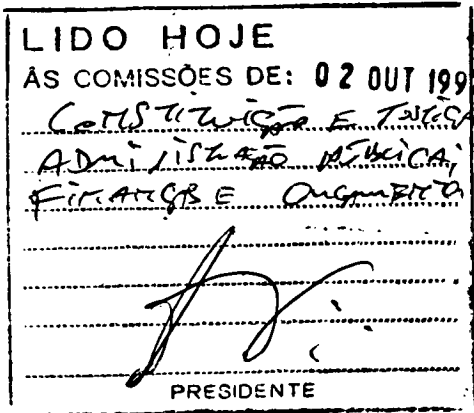 LIDO HOJE
ÀS COMISSÕES DE: 02 OUT 199
CONSTITUIÇÃO E JUSTIÇA
ADMINISTRAÇÃO PÚBLICA,
FINANÇAS E ORÇAMENTO
PRESIDENTE